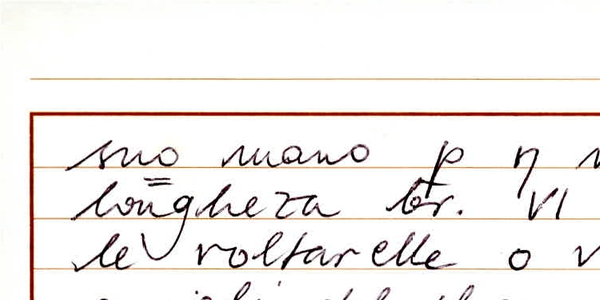 suo mano p η
longheza br. VI
le voltarelle o v